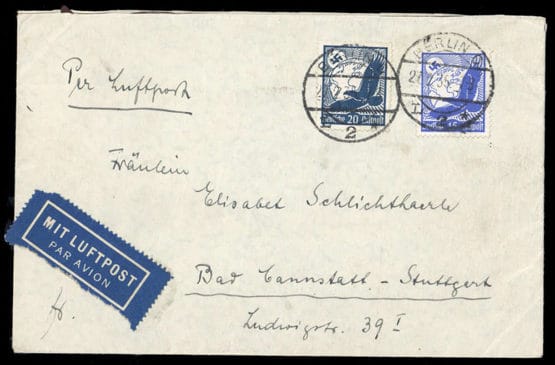 Per Luftpost
BERLIN
2
20
BERLIN
2
Fräulein
Elisabet Schlichthaerle
MIT LUFTPOST
PAR AVION
Bad Cannstatt - Stuttgart
Ludwigstr. 39 I